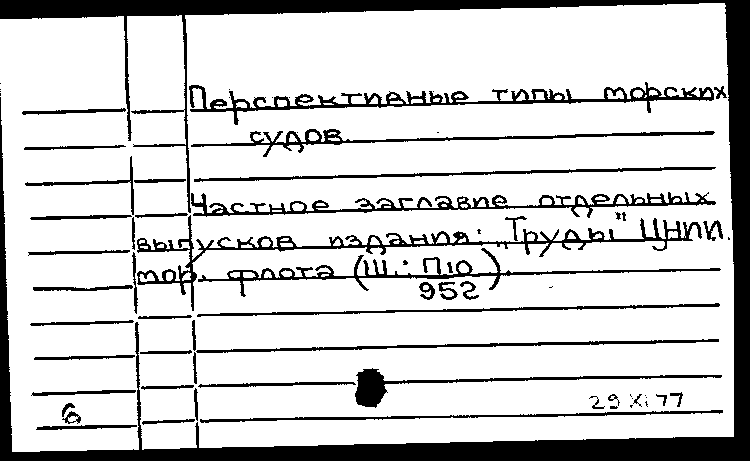 Перспективные типы морских
судов.
Частное заглавие отдельных
выпусков издания: „Труды" ЦНИИ
мор. флота (Ш: П10).
952
6
29 XI 77